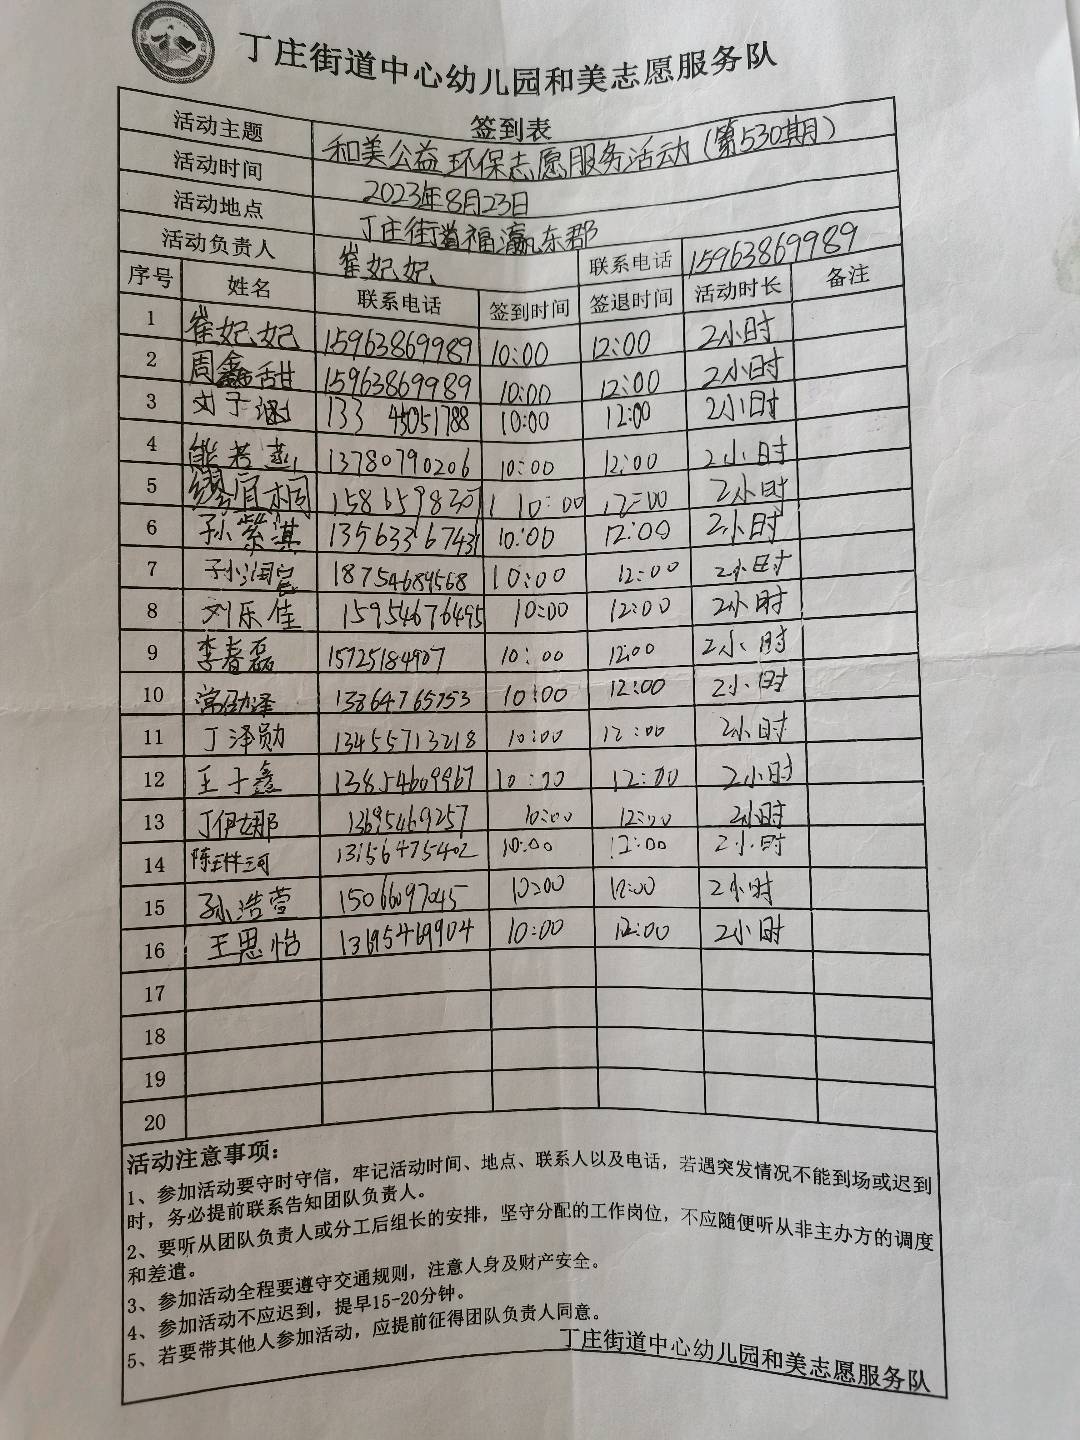 丁庄街道中心幼儿园和美志愿服务队
签到表
活动主题 和美公益环保志愿服务活动（第530期）
活动时间 2023年8月23日
活动地点 丁庄街道福瀛东郡
活动负责人 崔妃妃 联系电话 15963869989
序号 姓名 联系电话 签到时间 签退时间 活动时长 备注
1 崔妃妃 15963869989 10:00 12:00 2小时
2 周鑫甜 15963869989 10:00 12:00 2小时
3 刘子涵 133 45051788 10:00 12:00 2小时
4 熊若 13780790206 10:00 12:00 2小时
5 缪宜桐 10:00 12:00 2小时
6 孙紫淇 13563316743 10:00 12:00 2小时
7 孙润宸 18754684568 10:00 12:00 2小时
8 刘乐佳 15954676495 10:00 12:00 2小时
9 李春磊 15725184907 10:00 12:00 2小时
10 常劭泽 13864765753 10:00 12:00 2小时
11 丁泽勋 13455713218 10:00 12:00 2小时
12 王子鑫 13854609967 10:00 12:00 2小时
13 丁伊娜 13695469257 10:00 12:00 2小时
14 陈 13156475402 10:00 12:00 2小时
15 孙浩萱 15066097045 10:00 12:00 2小时
16 王思怡 13695469904 10:00 12:00 2小时
17
18
19
20
活动注意事项：
1、参加活动要守时守信，牢记活动时间、地点、联系人以及电话，若遇突发情况不能到场或迟到
时，务必提前联系告知团队负责人。
2、要听从团队负责人或分工后组长的安排，坚守分配的工作岗位，不应随便听从非主办方的调度
和差遣。
3、参加活动全程要遵守交通规则，注意人身及财产安全。
4、参加活动不应迟到，提早15-20分钟。
5、若要带其他人参加活动，应提前征得团队负责人同意。
丁庄街道中心幼儿园和美志愿服务队